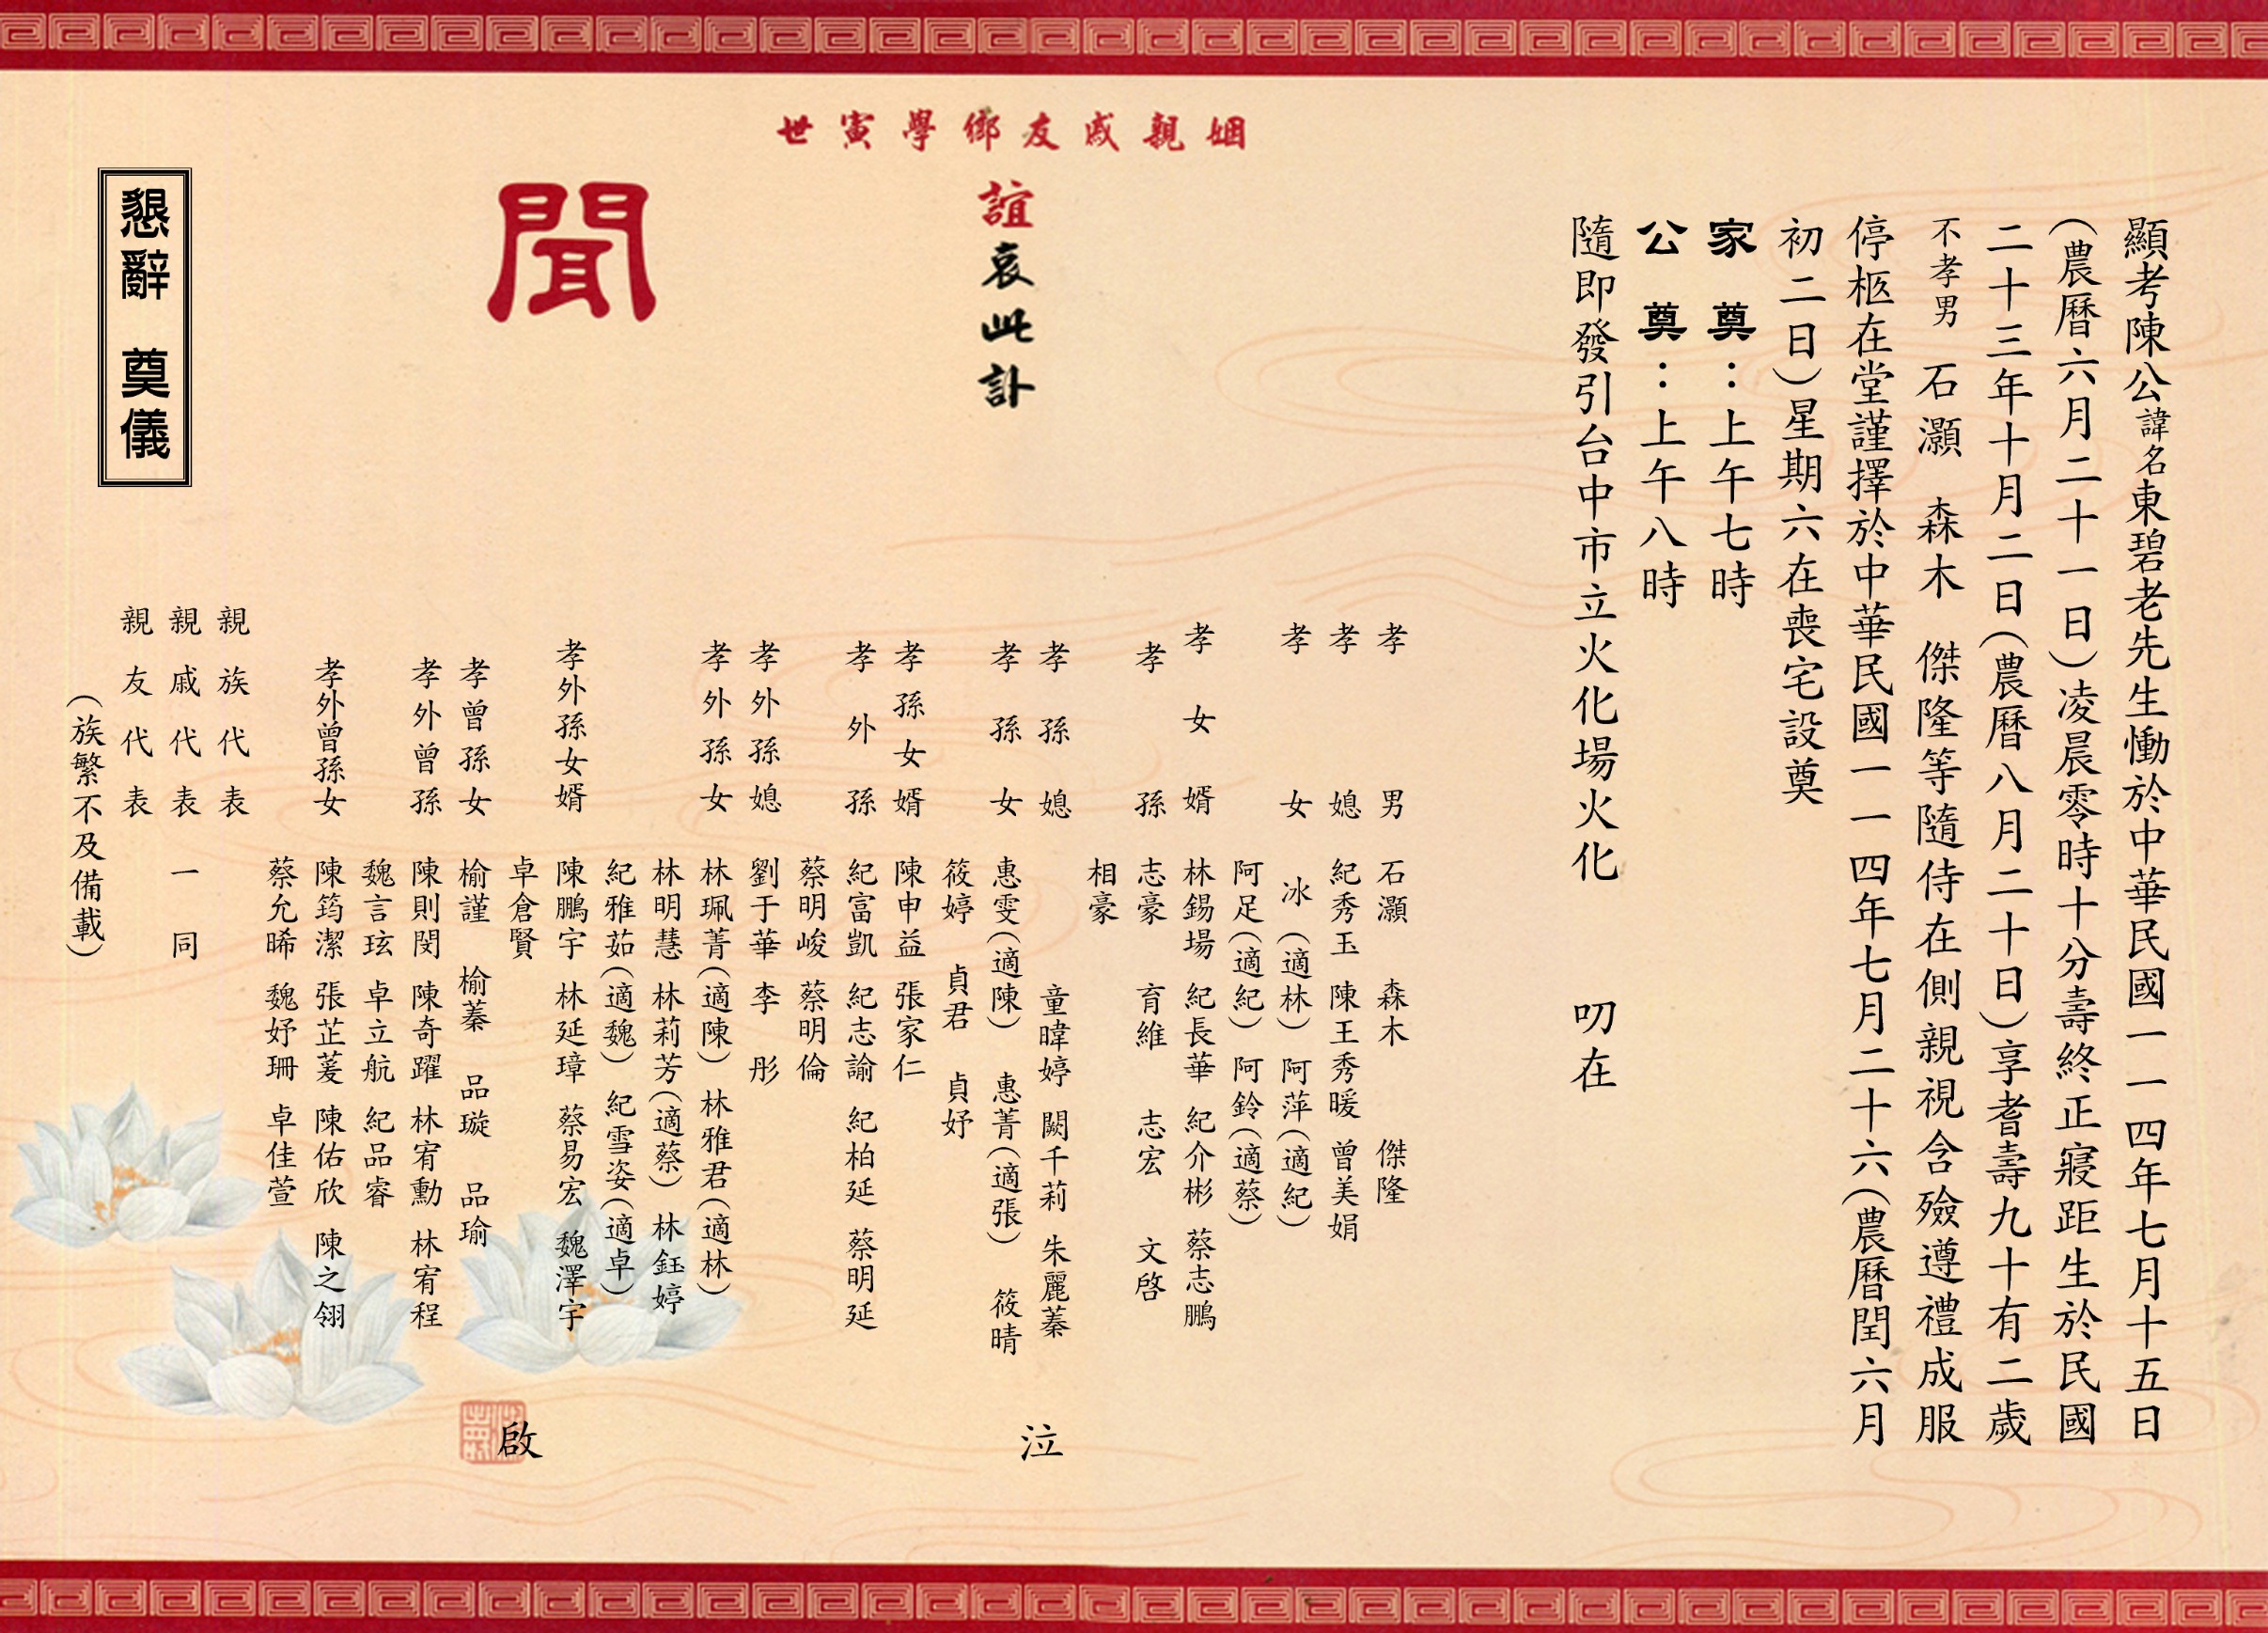 顯考陳公諱名東碧老先生慟於中華民國一一四年七月十五日
(農曆六月二十一日)凌晨零時十分壽終正寢距生於民國
二十三年十月二日(農曆八月二十日)享耆壽九十有二歲
不孝男 石灝 森木 傑隆等隨侍在側親視含殮遵禮成服
停柩在堂謹擇於中華民國一一四年七月二十六(農曆閏六月
初二日)星期六在喪宅設奠
家 奠：上午七時
公 奠：上午八時
隨即發引台中市立火化場火化 叨在
姻親戚友鄉學寅世
誼哀此訃
聞
孝男 石灝 森木 傑隆
孝媳 紀秀玉 陳王秀暖 曾美娟
孝女 冰(適林) 阿萍(適紀)
阿足(適紀) 阿鈴(適蔡)
孝女婿 林錫場 紀長華 紀介彬 蔡志鵬
孝孫 志豪 育維 志宏 文啓
相豪
孝孫媳 童暐婷 闕千莉 朱麗蓁
孝孫女 惠雯(適陳) 惠菁(適張) 筱晴
筱婷 貞君 貞妤
孝孫女婿 陳申益 張家仁
孝外孫 紀富凱 紀志諭 紀柏延 蔡明延
蔡明峻 蔡明倫
孝外孫媳 劉于華 李彤
孝外孫女 林珮菁(適陳) 林雅君(適林)
林明慧 林莉芳(適蔡) 林鈺婷
紀雅茹(適魏) 紀雪姿(適卓)
孝外孫女婿 陳鵬宇 林延璋 蔡易宏 魏澤宇
卓倉賢
孝曾孫女 榆謹 榆蓁 品璇 品瑜
孝外曾孫 陳則閔 陳奇躍 林宥勳 林宥程
魏言玹 卓立航 紀品睿
孝外曾孫女 陳筠潔 張芷菱 陳佑欣 陳之翎
蔡允晞 魏妤珊 卓佳萱
泣
啟
親族代表
親戚代表 一同
親友代表
(族繁不及備載)
懇辭 奠儀